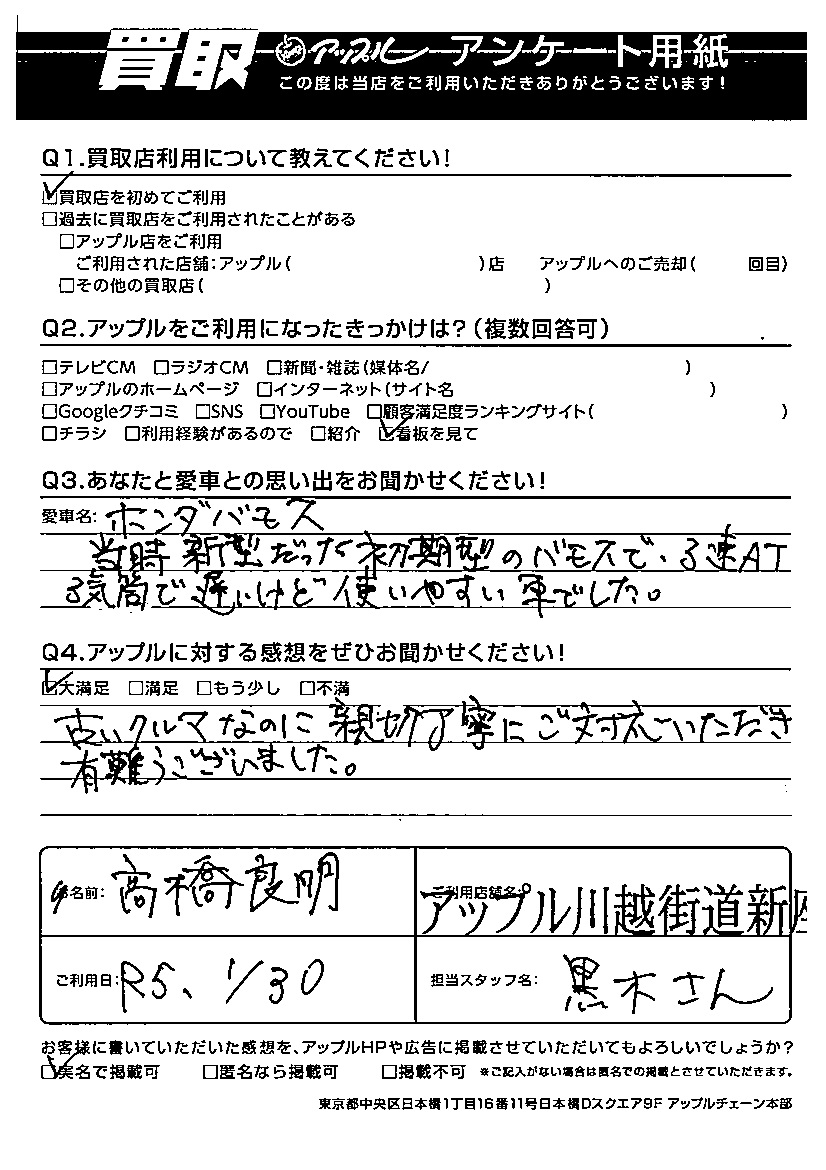 買取 アップル アンケート用紙
この度は当店をご利用いただきありがとうございます!
Q1.買取店利用について教えてください!
☑買取店を初めてご利用
□過去に買取店をご利用されたことがある
□アップル店をご利用
ご利用された店舗:アップル( )店 アップルへのご売却( 回目)
□その他の買取店( )
Q2.アップルをご利用になったきっかけは?(複数回答可)
□テレビCM □ラジオCM □新聞・雑誌(媒体名/ )
□アップルのホームページ □インターネット(サイト名 )
□Googleクチコミ □SNS □YouTube □顧客満足度ランキングサイト( )
□チラシ □利用経験があるので □紹介 ☑看板を見て
Q3.あなたと愛車との思い出をお聞かせください!
愛車名: ホンダバモス
当時新型だった初期型のバモスで、3速AT
3気筒で遅いけど使いやすい車でした。
Q4.アップルに対する感想をぜひお聞かせください!
☑大満足 □満足 □もう少し □不満
古いクルマなのに親切丁寧にご対応いただき
有難うございました。
お名前: 高橋良明
ご利用店舗名:
アップル川越街道新座
ご利用日: R5、1/30
担当スタッフ名: 黒木さん
お客様に書いていただいた感想を、アップルHPや広告に掲載させていただいてもよろしいでしょうか?
☑実名で掲載可 □匿名なら掲載可 □掲載不可 ※ご記入がない場合は匿名での掲載とさせていただきます。
東京都中央区日本橋1丁目16番11号日本橋Dスクエア9F アップルチェーン本部